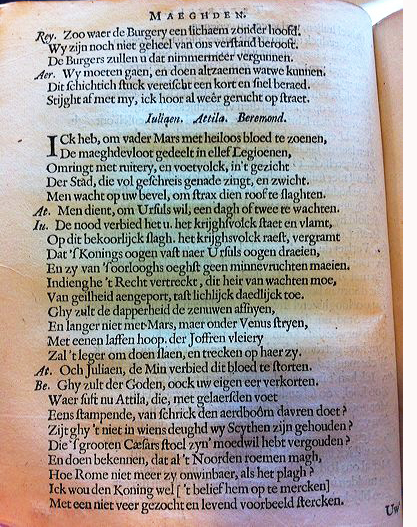 MAEGHDEN.
Rey. Zoo waer de Burgery een lichaem zonder hoofd.
Wy zijn noch niet geheel van ons verstand berooft.
De Burgers zullen u dat nimmermeer vergunnen.
Aer. Wy moeten gaen, en doen altzaemen wat we kunnen.
Dit schichtich stuck vereischt een kort en snel beraed.
Stijght af met my, ick hoor al weêr gerucht op straet.
Iuliaen. Attila. Beremond.
ICk heb, om vader Mars met heiloos bloed te zoenen,
De maeghdevloot gedeelt in ellef Legioenen,
Omringt met ruitery, en voetvolck, in't gezicht
Der Stad, die vol geschreis genade zingt, en zwicht.
Men wacht op uw bevel, om strax dien roof te slaghten.
At. Men dient, om Ursuls wil, een dagh of twee te wachten.
Iu. De nood verbied het u. het krijghsvolck staet en vlamt,
Op dit bekoorlijck slagh. het krijghsvolck raest, vergramt
Dat 's Konings oogen vast naer Ursuls oogen draeien,
En zy van 's oorlooghs oeghst geen minnevruchten maeien.
Indien ghe 't Recht vertreckt, dit heir van wachten moe,
Van geilheid aengeport, tast lichlijck daedlijck toe.
Ghy zult de dapperheid de zenuwen affnyen,
En langer niet met Mars, maer onder Venus stryen,
Met eenen laffen hoop. der Joffren vleiery
Zal 't leger om doen slaen, en trecken op haer zy.
At. Och Juliaen, de Min verbied dit bloed te storten.
Be. Ghy zult der Goden, oock uw eigen eer verkorten.
Waer is nu Attila, die, met gelaersden voet
Eens stampende, van schrick den aerdboôm davren doet?
Zijt ghy 't niet in wiens deughd wy Scythen zijn gehouden?
Die 's grooten Cæsars stoel zyn' moedwil hebt vergouden?
En doen bekennen, dat al 't Noorden roemen magh,
Hoe Rome niet meer zy onwinbaer, als het plagh?
Ick wou den Koning wel ['t belief hem op te mercken]
Met een niet veer gezocht en levend voorbeeld stercken.
Uw